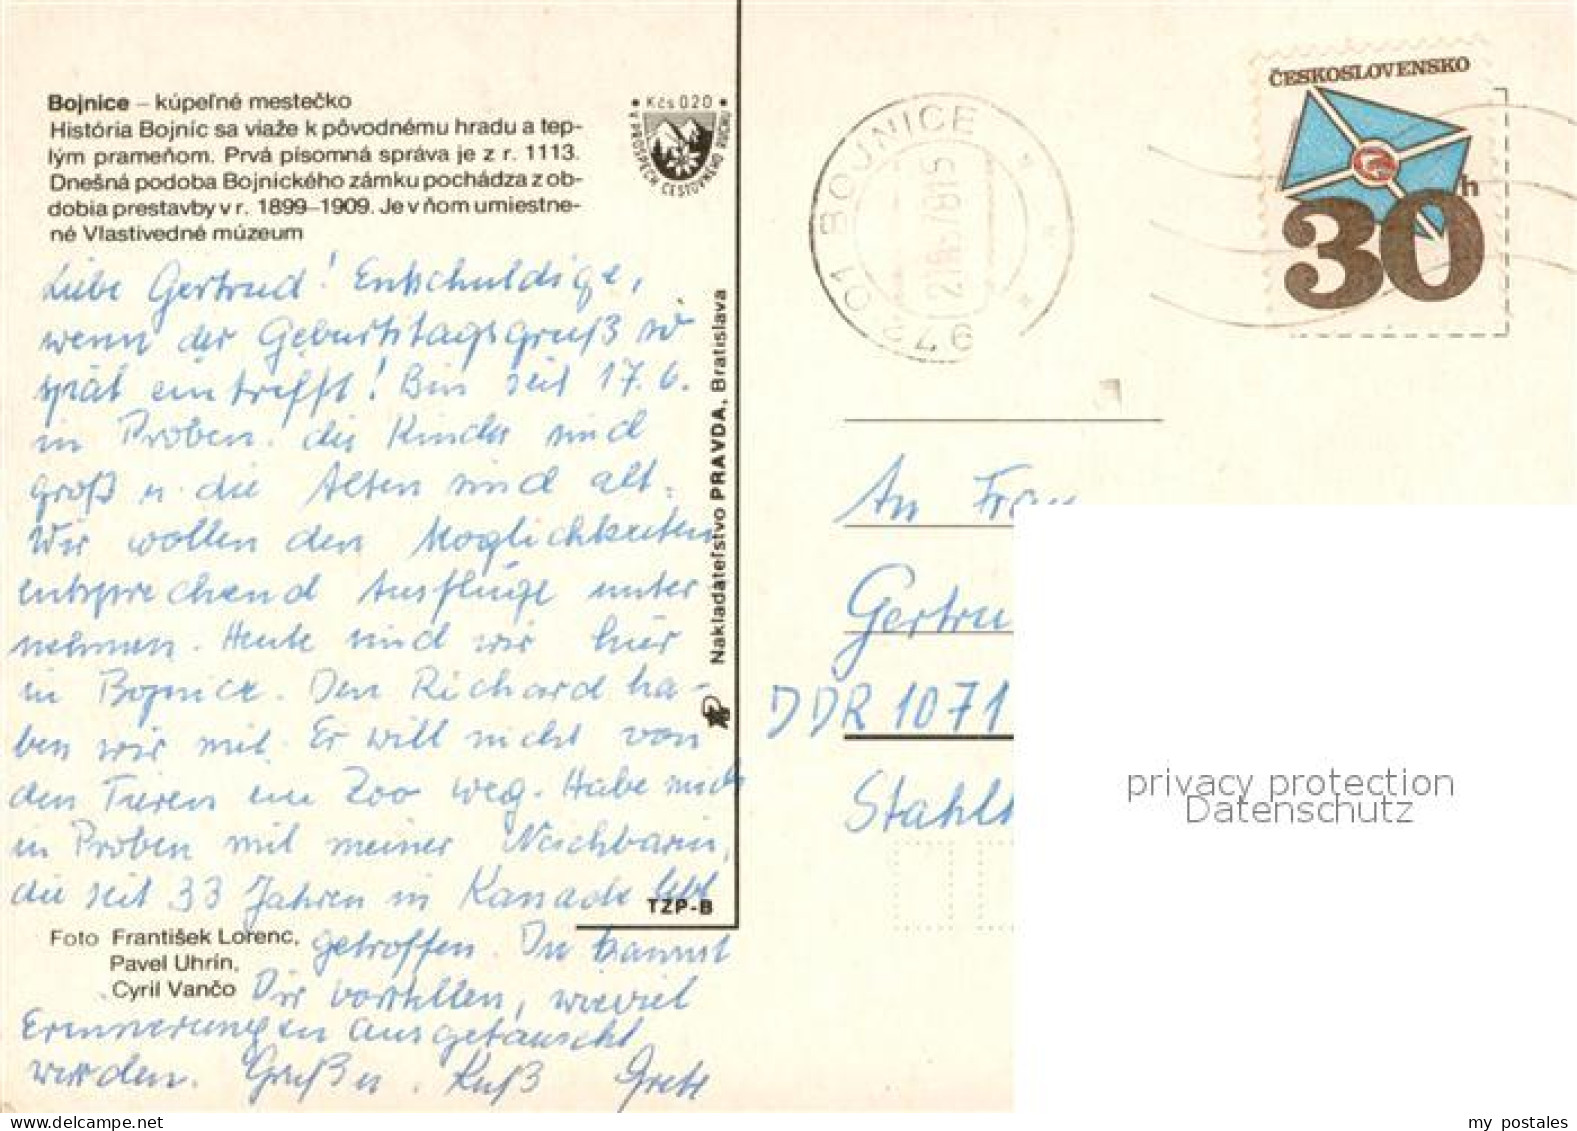 Bojnice – kúpeľné mestečko
História Bojníc sa viaže k pôvodnému hradu a tep-
lým prameňom. Prvá písomná správa je z r. 1113.
Dnešná podoba Bojnického zámku pochádza z ob-
dobia prestavby v r. 1899–1909. Je v ňom umiestne-
né Vlastivedné múzeum
• Kčs 0.20 •
V PROSPECH CESTOVNÉHO RUCHU
Liebe Gertrud! Entschuldige,
wenn der Geburtstagsgruß so
spät eintrifft! Bin seit 17.6.
in Proben. die Kinder sind
groß u. die Alten sind alt.
Wir wollen den Möglichkeiten
entsprechend Ausflüge unter
nehmen. Heute sind wir hier
in Bojnice. Den Richard ha-
ben wir mit. Er will nicht von
den Tieren im Zoo weg. Habe mich
in Proben mit meiner Nachbarin,
die seit 33 Jahren in Kanada lebt
getroffen. Du kannst
Dir vorstellen, wieviel
Erinnerungen ausgetauscht
werden. Gruß u. Kuß Grete
Foto František Lorenc,
Pavel Uhrín,
Cyril Vančo
TZP-B
Nakladateľstvo PRAVDA, Bratislava
01 BOJNICE
ČESKOSLOVENSKO
30 h
An Frau
Gertru
DDR 1071
Stahlh
privacy protection
Datenschutz
www.delcampe.net
my_postales